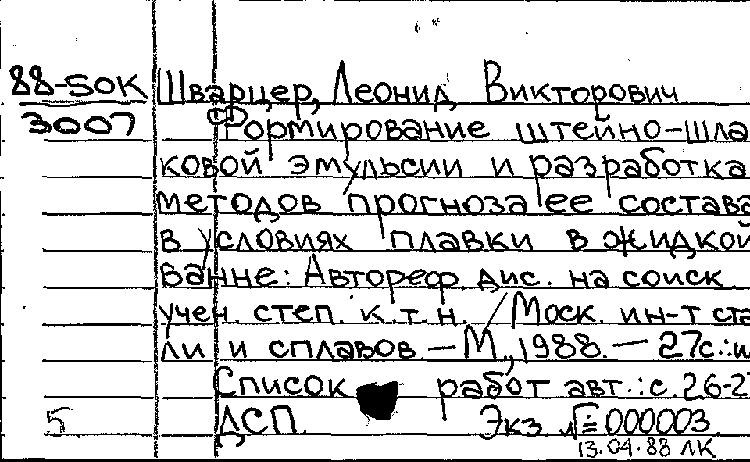 88-50К Шварцер, Леонид Викторович
3007 Формирование штейно-шла-
ковой эмульсии и разработка
методов прогноза ее состава
в условиях плавки в жидкой
ванне: Автореф. дис. на соиск.
учен. степ. к.т.н. / Моск. ин-т ста-
ли и сплавов. — М., 1988. — 27с.:и
Список работ авт.: с. 26-27
5 ДСП. Экз. № 000003.
13.04.88 ЛК